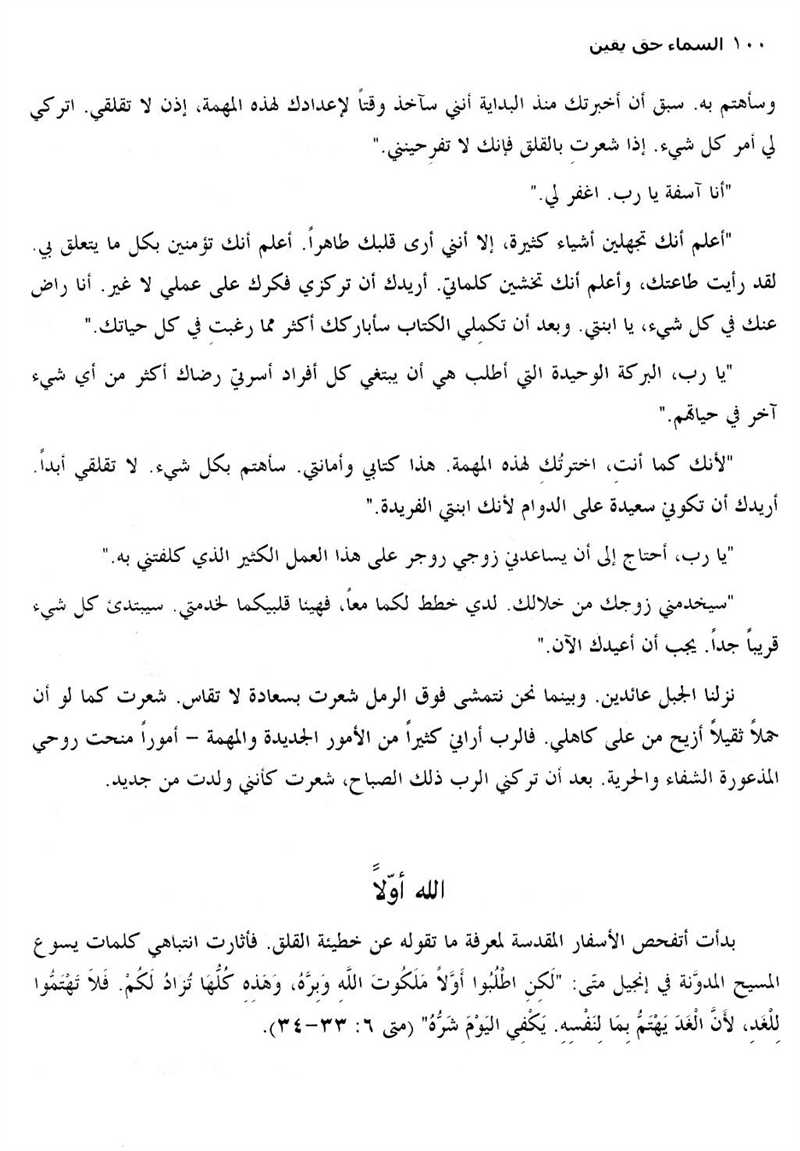 ١٠٠ السماء حق يقين
وسأهتم به. سبق أن أخبرتك منذ البداية أنني سآخذ وقتاً لإعدادك لهذه المهمة، إذن لا تقلقي. اتركي
لي أمر كل شيء. إذا شعرتِ بالقلق فإنك لا تفرحينني."
"أنا آسفة يا رب. اغفر لي."
"أعلم أنك تجهلين أشياء كثيرة، إلا أنني أرى قلبك طاهراً. أعلم أنك تؤمنين بكل ما يتعلق بي.
لقد رأيت طاعتك، وأعلم أنك تخشين كلماتي. أريدك أن تركزي فكرك على عملي لا غير. أنا راض
عنك في كل شيء، يا ابنتي. وبعد أن تكملي الكتاب سأباركك أكثر مما رغبتِ في كل حياتك."
"يا رب، البركة الوحيدة التي أطلب هي أن يبتغي كل أفراد أسرتي رضاك أكثر من أي شيء
آخر في حياتهم."
"لأنك كما أنتِ، اخترتُكِ لهذه المهمة. هذا كتابي وأمانتي. سأهتم بكل شيء. لا تقلقي أبداً.
أريدك أن تكوني سعيدة على الدوام لأنك ابنتي الفريدة."
"يا رب، أحتاج إلى أن يساعدني زوجي روجر على هذا العمل الكثير الذي كلفتني به."
"سيخدمني زوجك من خلالك. لدي خطط لكما معاً، فهيئا قلبيكما لخدمتي. سيبتدئ كل شيء
قريباً جداً. يجب أن أعيدك الآن."
نزلنا الجبل عائدين. وبينما نحن نتمشى فوق الرمل شعرت بسعادة لا تقاس. شعرت كما لو أن
حملاً ثقيلاً أزيح من على كاهلي. فالرب أراني كثيراً من الأمور الجديدة والمهمة – أموراً منحت روحي
المذعورة الشفاء والحرية. بعد أن تركني الرب ذلك الصباح، شعرت كأنني ولدت من جديد.
الله أوّلاً
بدأت أتفحص الأسفار المقدسة لمعرفة ما تقوله عن خطيئة القلق. فأثارت انتباهي كلمات يسوع
المسيح المدوَّنة في إنجيل متّى: "لَكِنِ اطْلُبُوا أَوَّلاً مَلَكُوتَ اللَّهِ وَبِرَّهُ، وَهَذِهِ كُلُّهَا تُزَادُ لَكُمْ. فَلاَ تَهْتَمُّوا
لِلْغَدِ، لأَنَّ الْغَدَ يَهْتَمُّ بِمَا لِنَفْسِهِ. يَكْفِي الْيَوْمَ شَرُّهُ" (متى ٦: ٣٣–٣٤).